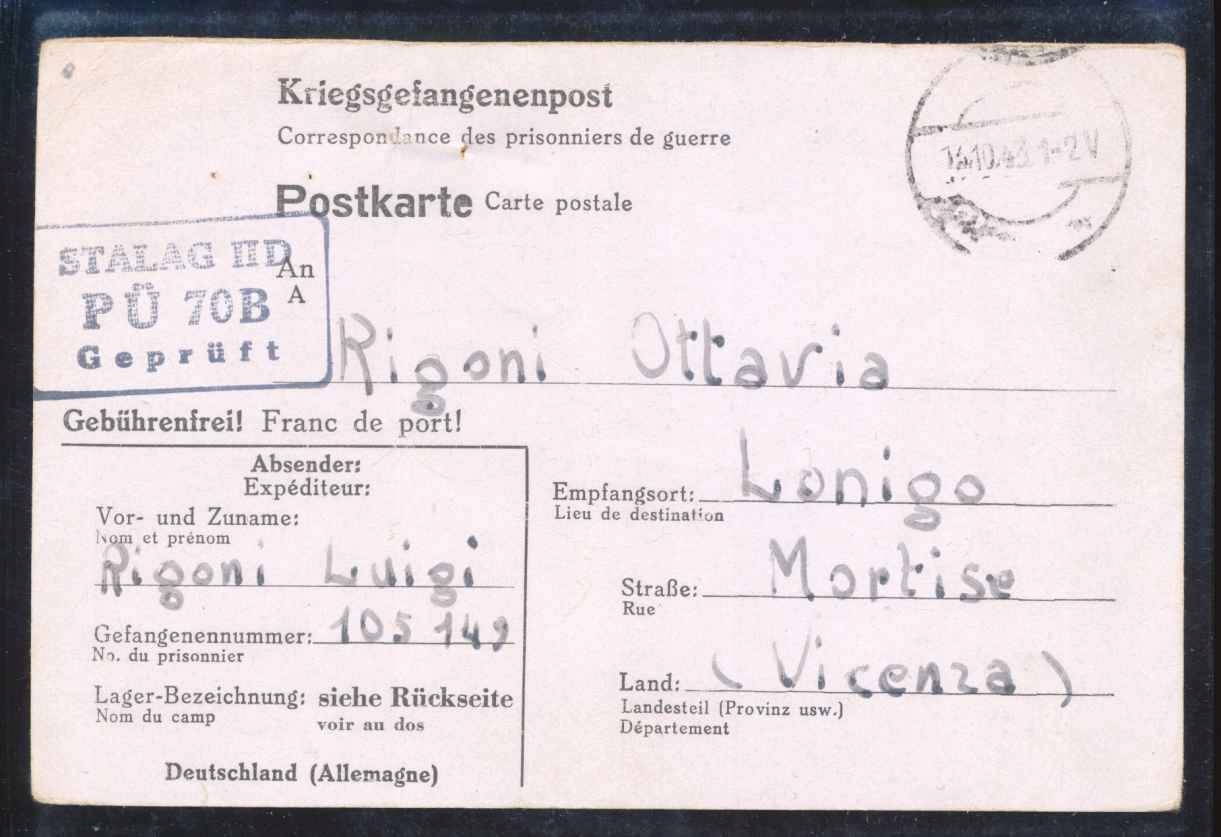 Kriegsgefangenenpost
Correspondance des prisonniers de guerre
Postkarte Carte postale
1-2V
STALAG IID
PÜ 70B
Geprüft
An
A
Rigoni Ottavia
Gebührenfrei! Franc de port!
Absender:
Expéditeur:
Vor- und Zuname:
Nom et prénom
Rigoni Luigi
Gefangenennummer: 105149
No. du prisonnier
Lager-Bezeichnung: siehe Rückseite
Nom du camp voir au dos
Deutschland (Allemagne)
Empfangsort: Lonigo
Lieu de destination
Straße: Mortise
Rue
Land: (Vicenza)
Landesteil (Provinz usw.)
Département